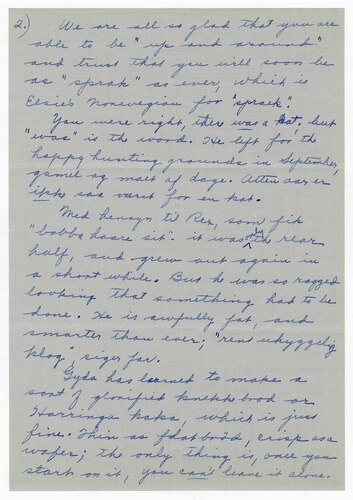 2.) We are all so glad that you are
able to be "up and around"
and trust that you will soon be
as "sprak" as ever, which is
Elsie's Norwegian for "sprack".
You were right, there was a kat, but
"was" is the word. He left for the
happy hunting grounds in September,
gamel og matt af dage. Atten aar er
ikke saa værst for en kat.
Med hensyn til Per, som fik
"bobba haare sit". it was only the rear
half, and grew out again in
a short while. But he was so ragged
looking that something had to be
done. He is awfully fat, and
smarter than ever; "rent uhyggelig
klog", siger far.
Gyda has learned to make a
sort of glorified knekkebrod or
Harringa kaka, which is just
fine. Thin as flatbröd, crisp as a
wafer; the only thing is, once you
start on it, you can't leave it alone.